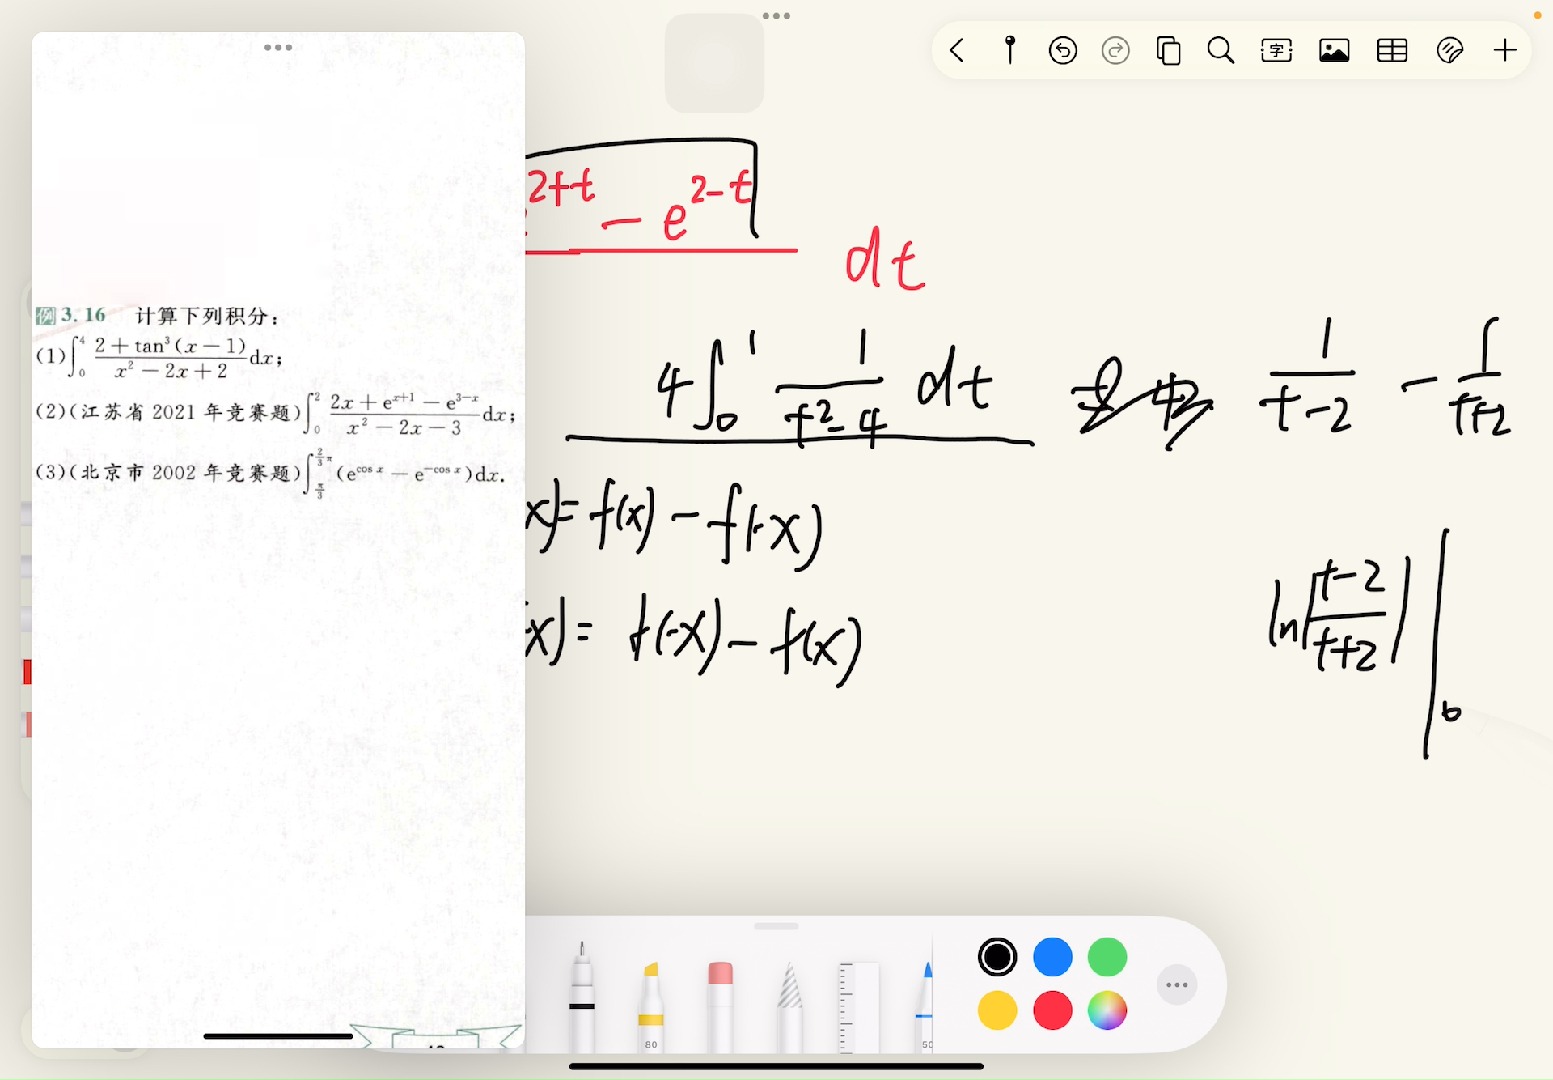 例 3.16 计算下列积分：
(1) ∫₀⁴ (2 + tan³(x − 1))/(x² − 2x + 2) dx；
(2)(江苏省 2021 年竞赛题) ∫₀² (2x + e^(x+1) − e^(3−x))/(x² − 2x − 3) dx；
(3)(北京市 2002 年竞赛题) ∫_(π/3)^(2/3 π) (e^(cos x) − e^(−cos x))dx.
2+t − e^(2−t)
dt
4∫₀¹ 1/(t²−4) dt
1/(t−2) − 1/(t+2)
x)= f(x) − f(-x)
x)= f(-x) − f(x)
ln|(t−2)/(t+2)| |₀
字
80
50